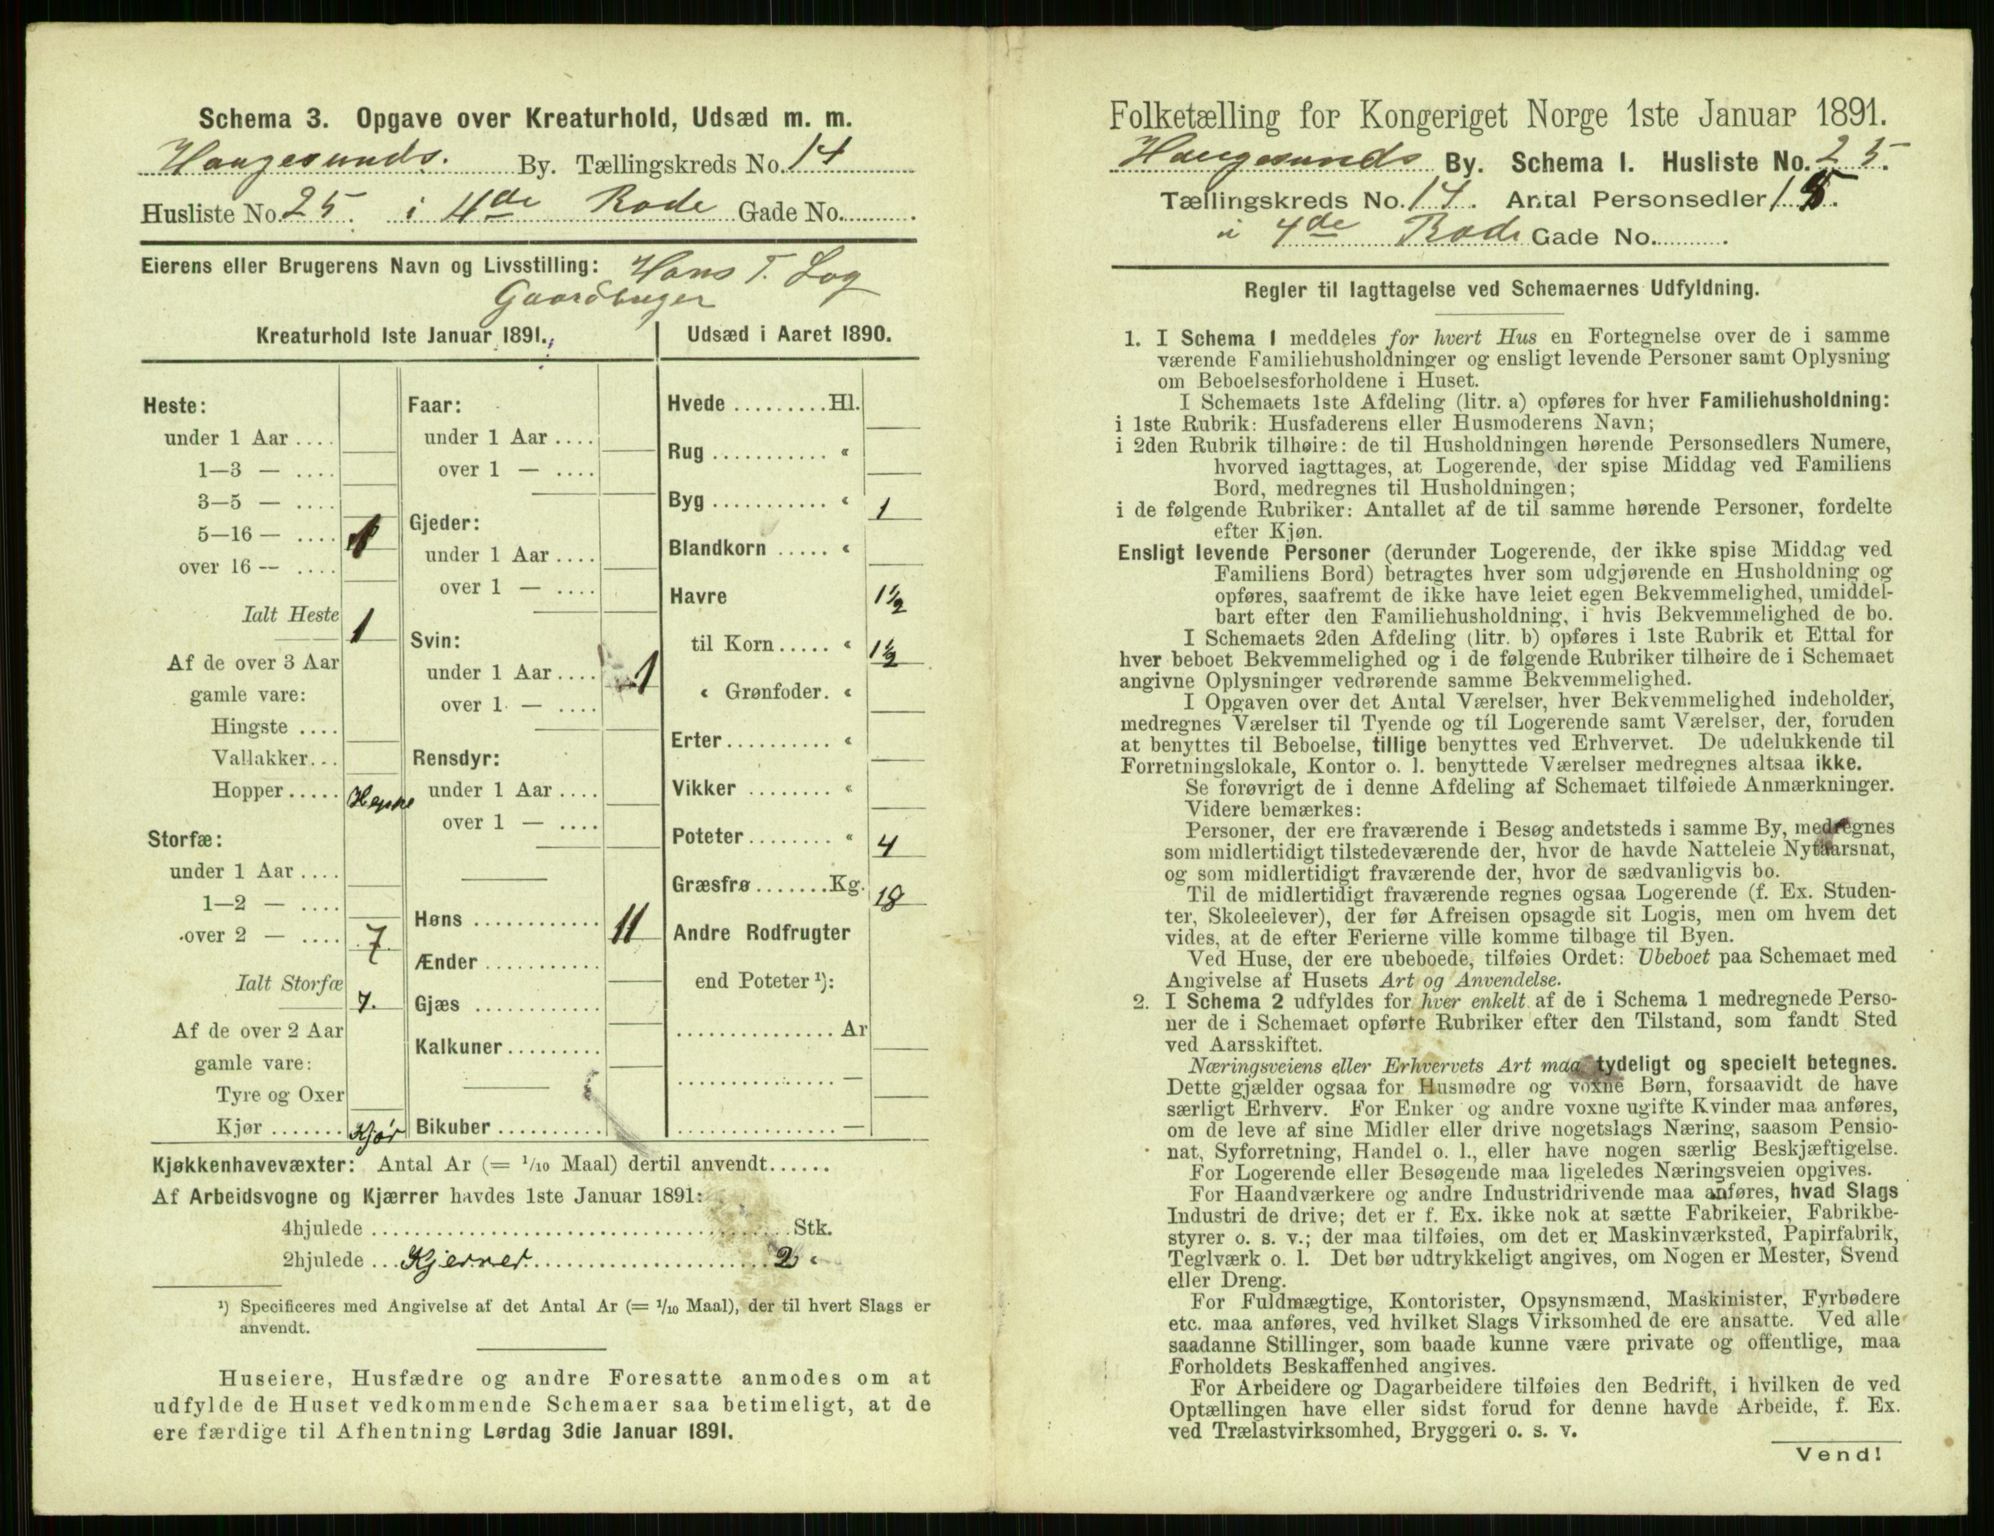 Schema 3. Opgave over Kreaturhold, Udsæd m. m.
Haugesunds. By. Tællingskreds No. 14
Husliste No. 25. i 4de Rode Gade No.
Eierens eller Brugerens Navn og Livsstilling: Hans T. Log
Gaardbruger
Kreaturhold 1ste Januar 1891.
Heste:
under 1 Aar ....
1—3 — ....
3—5 — ....
5—16 — .... 1
over 16 — ....
Ialt Heste 1
Af de over 3 Aar
gamle vare:
Hingste ....
Vallakker...
Hopper ..... Hoppe
Storfæ:
under 1 Aar ....
1—2 — ....
over 2 — .... 7.
Ialt Storfæ 7.
Af de over 2 Aar
gamle vare:
Tyre og Oxer
Kjør ....... Kjør
Faar:
under 1 Aar ....
over 1 — ....
Gjeder:
under 1 Aar ....
over 1 — ....
Svin:
under 1 Aar .... 1
over 1 — ....
Rensdyr:
under 1 Aar ....
over 1 — ....
Høns ............ 11
Ænder ...........
Gjæs ............
Kalkuner.........
Bikuber ..........
Udsæd i Aaret 1890.
Hvede .........Hl.
Rug ........... «
Byg ........... « 1
Blandkorn ..... «
Havre 1½
til Korn ..... « 1½
« Grønfoder. «
Erter.......... «
Vikker ........ «
Poteter ........ « 4
Græsfrø .......Kg. 18
Andre Rodfrugter
end Poteter ¹):
............... Ar
............... —
............... —
Kjøkkenhavevæxter: Antal Ar (= 1/10 Maal) dertil anvendt......
Af Arbeidsvogne og Kjærrer havdes 1ste Januar 1891:
4hjulede ........................................ Stk.
2hjulede ... Kjerrer........................ 2 «
¹) Specificeres med Angivelse af det Antal Ar (= 1/10 Maal), der til hvert Slags er
anvendt.
Huseiere, Husfædre og andre Foresatte anmodes om at
udfylde de Huset vedkommende Schemaer saa betimeligt, at de
ere færdige til Afhentning Lørdag 3die Januar 1891.
Folketælling for Kongeriget Norge 1ste Januar 1891.
Haugesunds By. Schema 1. Husliste No. 25.
Tællingskreds No. 14. Antal Personsedler 15.
i 4de Rode Gade No.
Regler til Iagttagelse ved Schemaernes Udfyldning.
1. I Schema 1 meddeles for hvert Hus en Fortegnelse over de i samme
værende Familiehusholdninger og ensligt levende Personer samt Oplysning
om Beboelsesforholdene i Huset.
I Schemaets 1ste Afdeling (litr. a) opføres for hver Familiehusholdning:
i 1ste Rubrik: Husfaderens eller Husmoderens Navn;
i 2den Rubrik tilhøire: de til Husholdningen hørende Personsedlers Numere,
hvorved iagttages, at Logerende, der spise Middag ved Familiens
Bord, medregnes til Husholdningen;
i de følgende Rubriker: Antallet af de til samme hørende Personer, fordelte
efter Kjøn.
Ensligt levende Personer (derunder Logerende, der ikke spise Middag ved
Familiens Bord) betragtes hver som udgjørende en Husholdning og
opføres, saafremt de ikke have leiet egen Bekvemmelighed, umiddel-
bart efter den Familiehusholdning, i hvis Bekvemmelighed de bo.
I Schemaets 2den Afdeling (litr. b) opføres i 1ste Rubrik et Ettal for
hver beboet Bekvemmelighed og i de følgende Rubriker tilhøire de i Schemaet
angivne Oplysninger vedrørende samme Bekvemmelighed.
I Opgaven over det Antal Værelser, hver Bekvemmelighed indeholder,
medregnes Værelser til Tyende og til Logerende samt Værelser, der, foruden
at benyttes til Beboelse, tillige benyttes ved Erhvervet. De udelukkende til
Forretningslokale, Kontor o. l. benyttede Værelser medregnes altsaa ikke.
Se forøvrigt de i denne Afdeling af Schemaet tilføiede Anmærkninger.
Videre bemærkes:
Personer, der ere fraværende i Besøg andetsteds i samme By, medregnes
som midlertidigt tilstedeværende der, hvor de havde Natteleie Nytaarsnat,
og som midlertidigt fraværende der, hvor de sædvanligvis bo.
Til de midlertidigt fraværende regnes ogsaa Logerende (f. Ex. Studen-
ter, Skoleelever), der før Afreisen opsagde sit Logis, men om hvem det
vides, at de efter Ferierne ville komme tilbage til Byen.
Ved Huse, der ere ubeboede, tilføies Ordet: Ubeboet paa Schemaet med
Angivelse af Husets Art og Anvendelse.
2. I Schema 2 udfyldes for hver enkelt af de i Schema 1 medregnede Perso-
ner de i Schemaet opførte Rubriker efter den Tilstand, som fandt Sted
ved Aarsskiftet.
Næringsveiens eller Erhvervets Art maa tydeligt og specielt betegnes.
Dette gjælder ogsaa for Husmødre og voxne Børn, forsaavidt de have
særligt Erhverv. For Enker og andre voxne ugifte Kvinder maa anføres,
om de leve af sine Midler eller drive nogetslags Næring, saasom Pensio-
nat, Syforretning, Handel o. l., eller have nogen særlig Beskjæftigelse.
For Logerende eller Besøgende maa ligeledes Næringsveien opgives.
For Haandværkere og andre Industridrivende maa anføres, hvad Slags
Industri de drive; det er f. Ex. ikke nok at sætte Fabrikeier, Fabrikbe-
styrer o. s. v.; der maa tilføies, om det er Maskinværksted, Papirfabrik,
Teglværk o. l. Det bør udtrykkeligt angives, om Nogen er Mester, Svend
eller Dreng.
For Fuldmægtige, Kontorister, Opsynsmænd, Maskinister, Fyrbødere
etc. maa anføres, ved hvilket Slags Virksomhed de ere ansatte. Ved alle
saadanne Stillinger, som baade kunne være private og offentlige, maa
Forholdets Beskaffenhed angives.
For Arbeidere og Dagarbeidere tilføies den Bedrift, i hvilken de ved
Optællingen have eller sidst forud for denne havde Arbeide, f. Ex.
ved Trælastvirksomhed, Bryggeri o. s. v.
Vend!